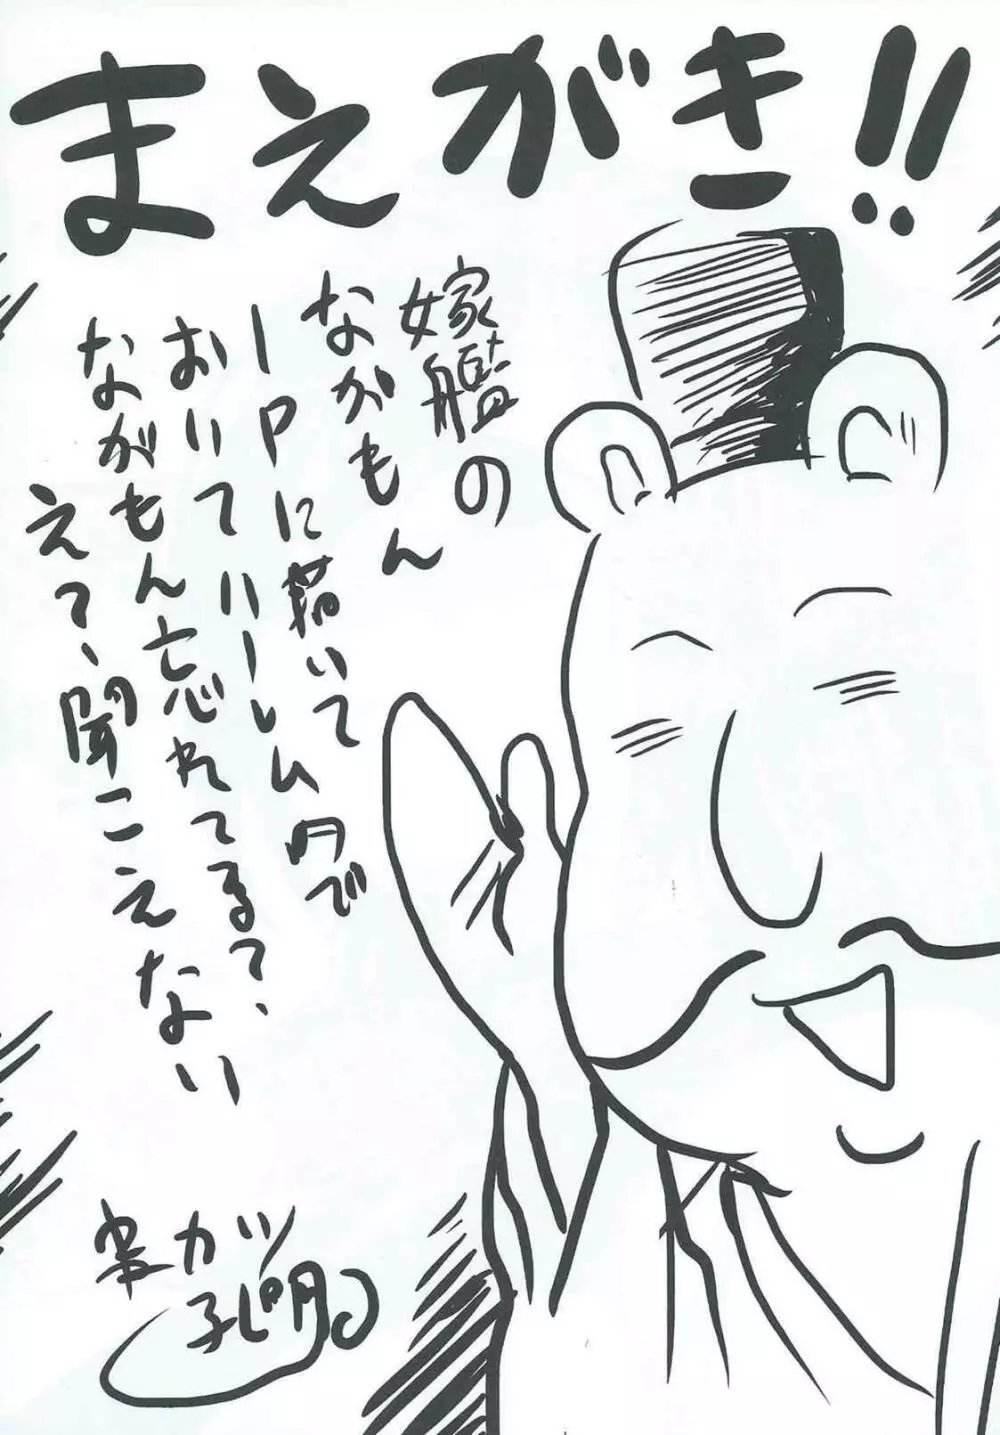 まえがき!!
嫁艦の
ながもん
1Pに描いて
おいてハーレム内で
ながもん忘れてる?、
え?、聞こえない
カツ
孔明